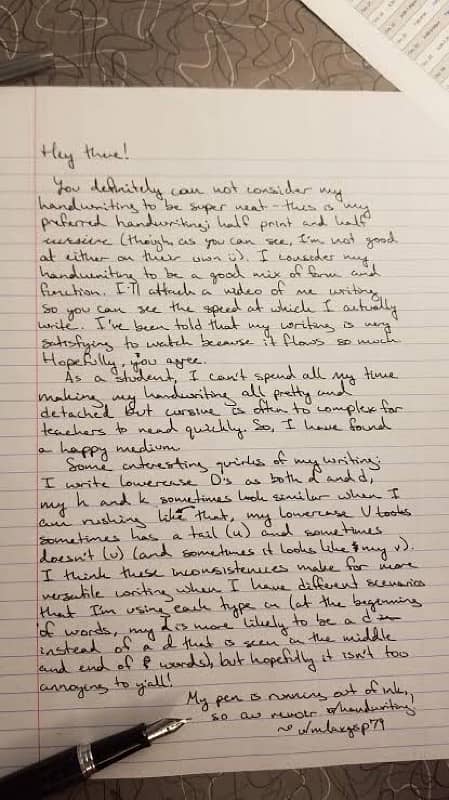 Hey there!
You definitely can not consider my
handwriting to be super neat - this is my
preferred handwriting; half print and half
cursive (though as you can see, I'm not good
at either on their own ü). I consider my
handwriting to be a good mix of form and
function. I'll attach a video of me writing
so you can see the speed at which I actually
write. I've been told that my writing is very
satisfying to watch because it flows so much.
Hopefully, you agree.
As a student, I can't spend all my time
making my handwriting all pretty and
detached but cursive is often to complex for
teachers to read quickly. So, I have found
a happy medium.
Some interesting quirks of my writing:
I write lowercase D's as both d and d,
my h and k sometimes look similar when I
am rushing like that, my lowercase U looks
sometimes has a tail (u) and sometimes
doesn't (u) (and sometimes it looks like my v).
I think these inconsistencies make for more
versatile writing when I have different scenarios
that I'm using each type in (at the beginning
of words, my d is more likely to be a d
instead of a d that is seen in the middle
and end of words), but hopefully it isn't too
annoying to y'all!
My pen is running out of ink,
so au revoir r/handwriting
~ u/